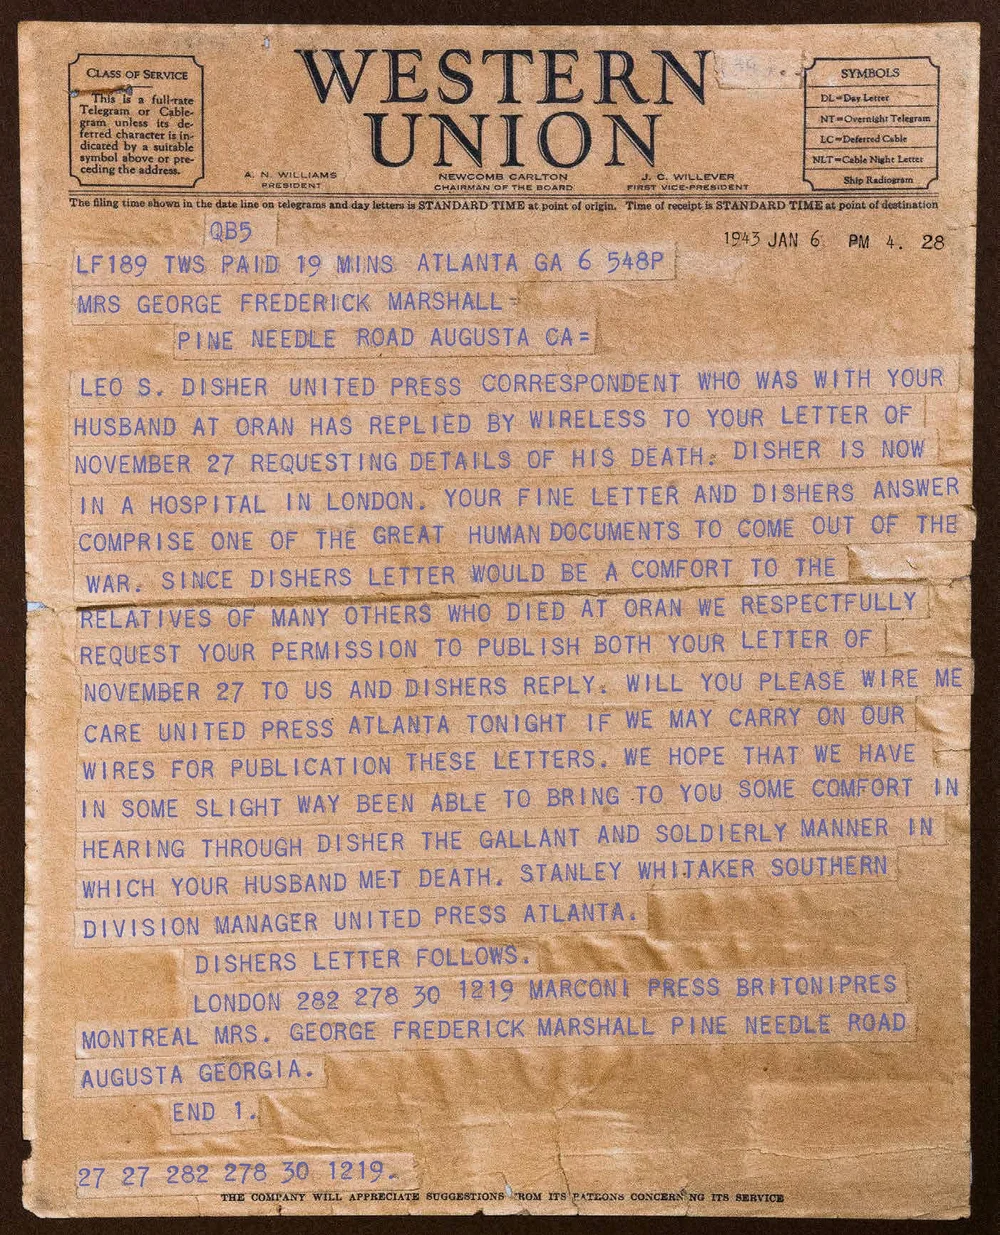 CLASS OF SERVICE
This is a full-rate
Telegram or Cable-
gram unless its de-
ferred character is in-
dicated by a suitable
symbol above or pre-
ceding the address.
WESTERN
UNION
A. N. WILLIAMS
PRESIDENT
NEWCOMB CARLTON
CHAIRMAN OF THE BOARD
J. C. WILLEVER
FIRST VICE-PRESIDENT
SYMBOLS
DL=Day Letter
NT=Overnight Telegram
LC=Deferred Cable
NLT=Cable Night Letter
Ship Radiogram
The filing time shown in the date line on telegrams and day letters is STANDARD TIME at point of origin. Time of receipt is STANDARD TIME at point of destination
QB5
1943 JAN 6 PM 4. 28
LF189 TWS PAID 19 MINS ATLANTA GA 6 548P
MRS GEORGE FREDERICK MARSHALL=
PINE NEEDLE ROAD AUGUSTA CA=
LEO S. DISHER UNITED PRESS CORRESPONDENT WHO WAS WITH YOUR
HUSBAND AT ORAN HAS REPLIED BY WIRELESS TO YOUR LETTER OF
NOVEMBER 27 REQUESTING DETAILS OF HIS DEATH. DISHER IS NOW
IN A HOSPITAL IN LONDON. YOUR FINE LETTER AND DISHERS ANSWER
COMPRISE ONE OF THE GREAT HUMAN DOCUMENTS TO COME OUT OF THE
WAR. SINCE DISHERS LETTER WOULD BE A COMFORT TO THE
RELATIVES OF MANY OTHERS WHO DIED AT ORAN WE RESPECTFULLY
REQUEST YOUR PERMISSION TO PUBLISH BOTH YOUR LETTER OF
NOVEMBER 27 TO US AND DISHERS REPLY. WILL YOU PLEASE WIRE ME
CARE UNITED PRESS ATLANTA TONIGHT IF WE MAY CARRY ON OUR
WIRES FOR PUBLICATION THESE LETTERS. WE HOPE THAT WE HAVE
IN SOME SLIGHT WAY BEEN ABLE TO BRING TO YOU SOME COMFORT IN
HEARING THROUGH DISHER THE GALLANT AND SOLDIERLY MANNER IN
WHICH YOUR HUSBAND MET DEATH. STANLEY WHITAKER SOUTHERN
DIVISION MANAGER UNITED PRESS ATLANTA.
DISHERS LETTER FOLLOWS.
LONDON 282 278 30 1219 MARCONI PRESS BRITONIPRES
MONTREAL MRS. GEORGE FREDERICK MARSHALL PINE NEEDLE ROAD
AUGUSTA GEORGIA.
END 1.
27 27 282 278 30 1219.
THE COMPANY WILL APPRECIATE SUGGESTIONS ROM ITS PATRONS CONCERN NG ITS SERVICE